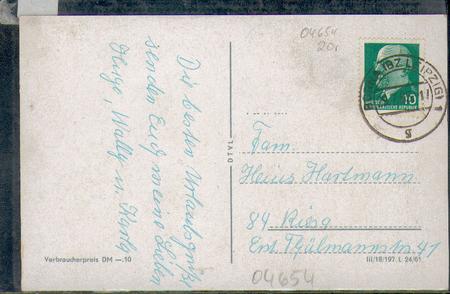 Die besten Urlaubsgrüße
senden Euch meine Lieben
Helga, Wally u. Herta
04654
20,-
10
(BZ. LEIPZIG) 1
g
DEUTSCHE DEMOKRATISCHE REPUBLIK
DIALET
Fam.
Heinz Hartmann
84 Riesa
Ernst Thälmannstr. 41
Verbraucherpreis DM —.10
III/18/197 L 24/61
04654